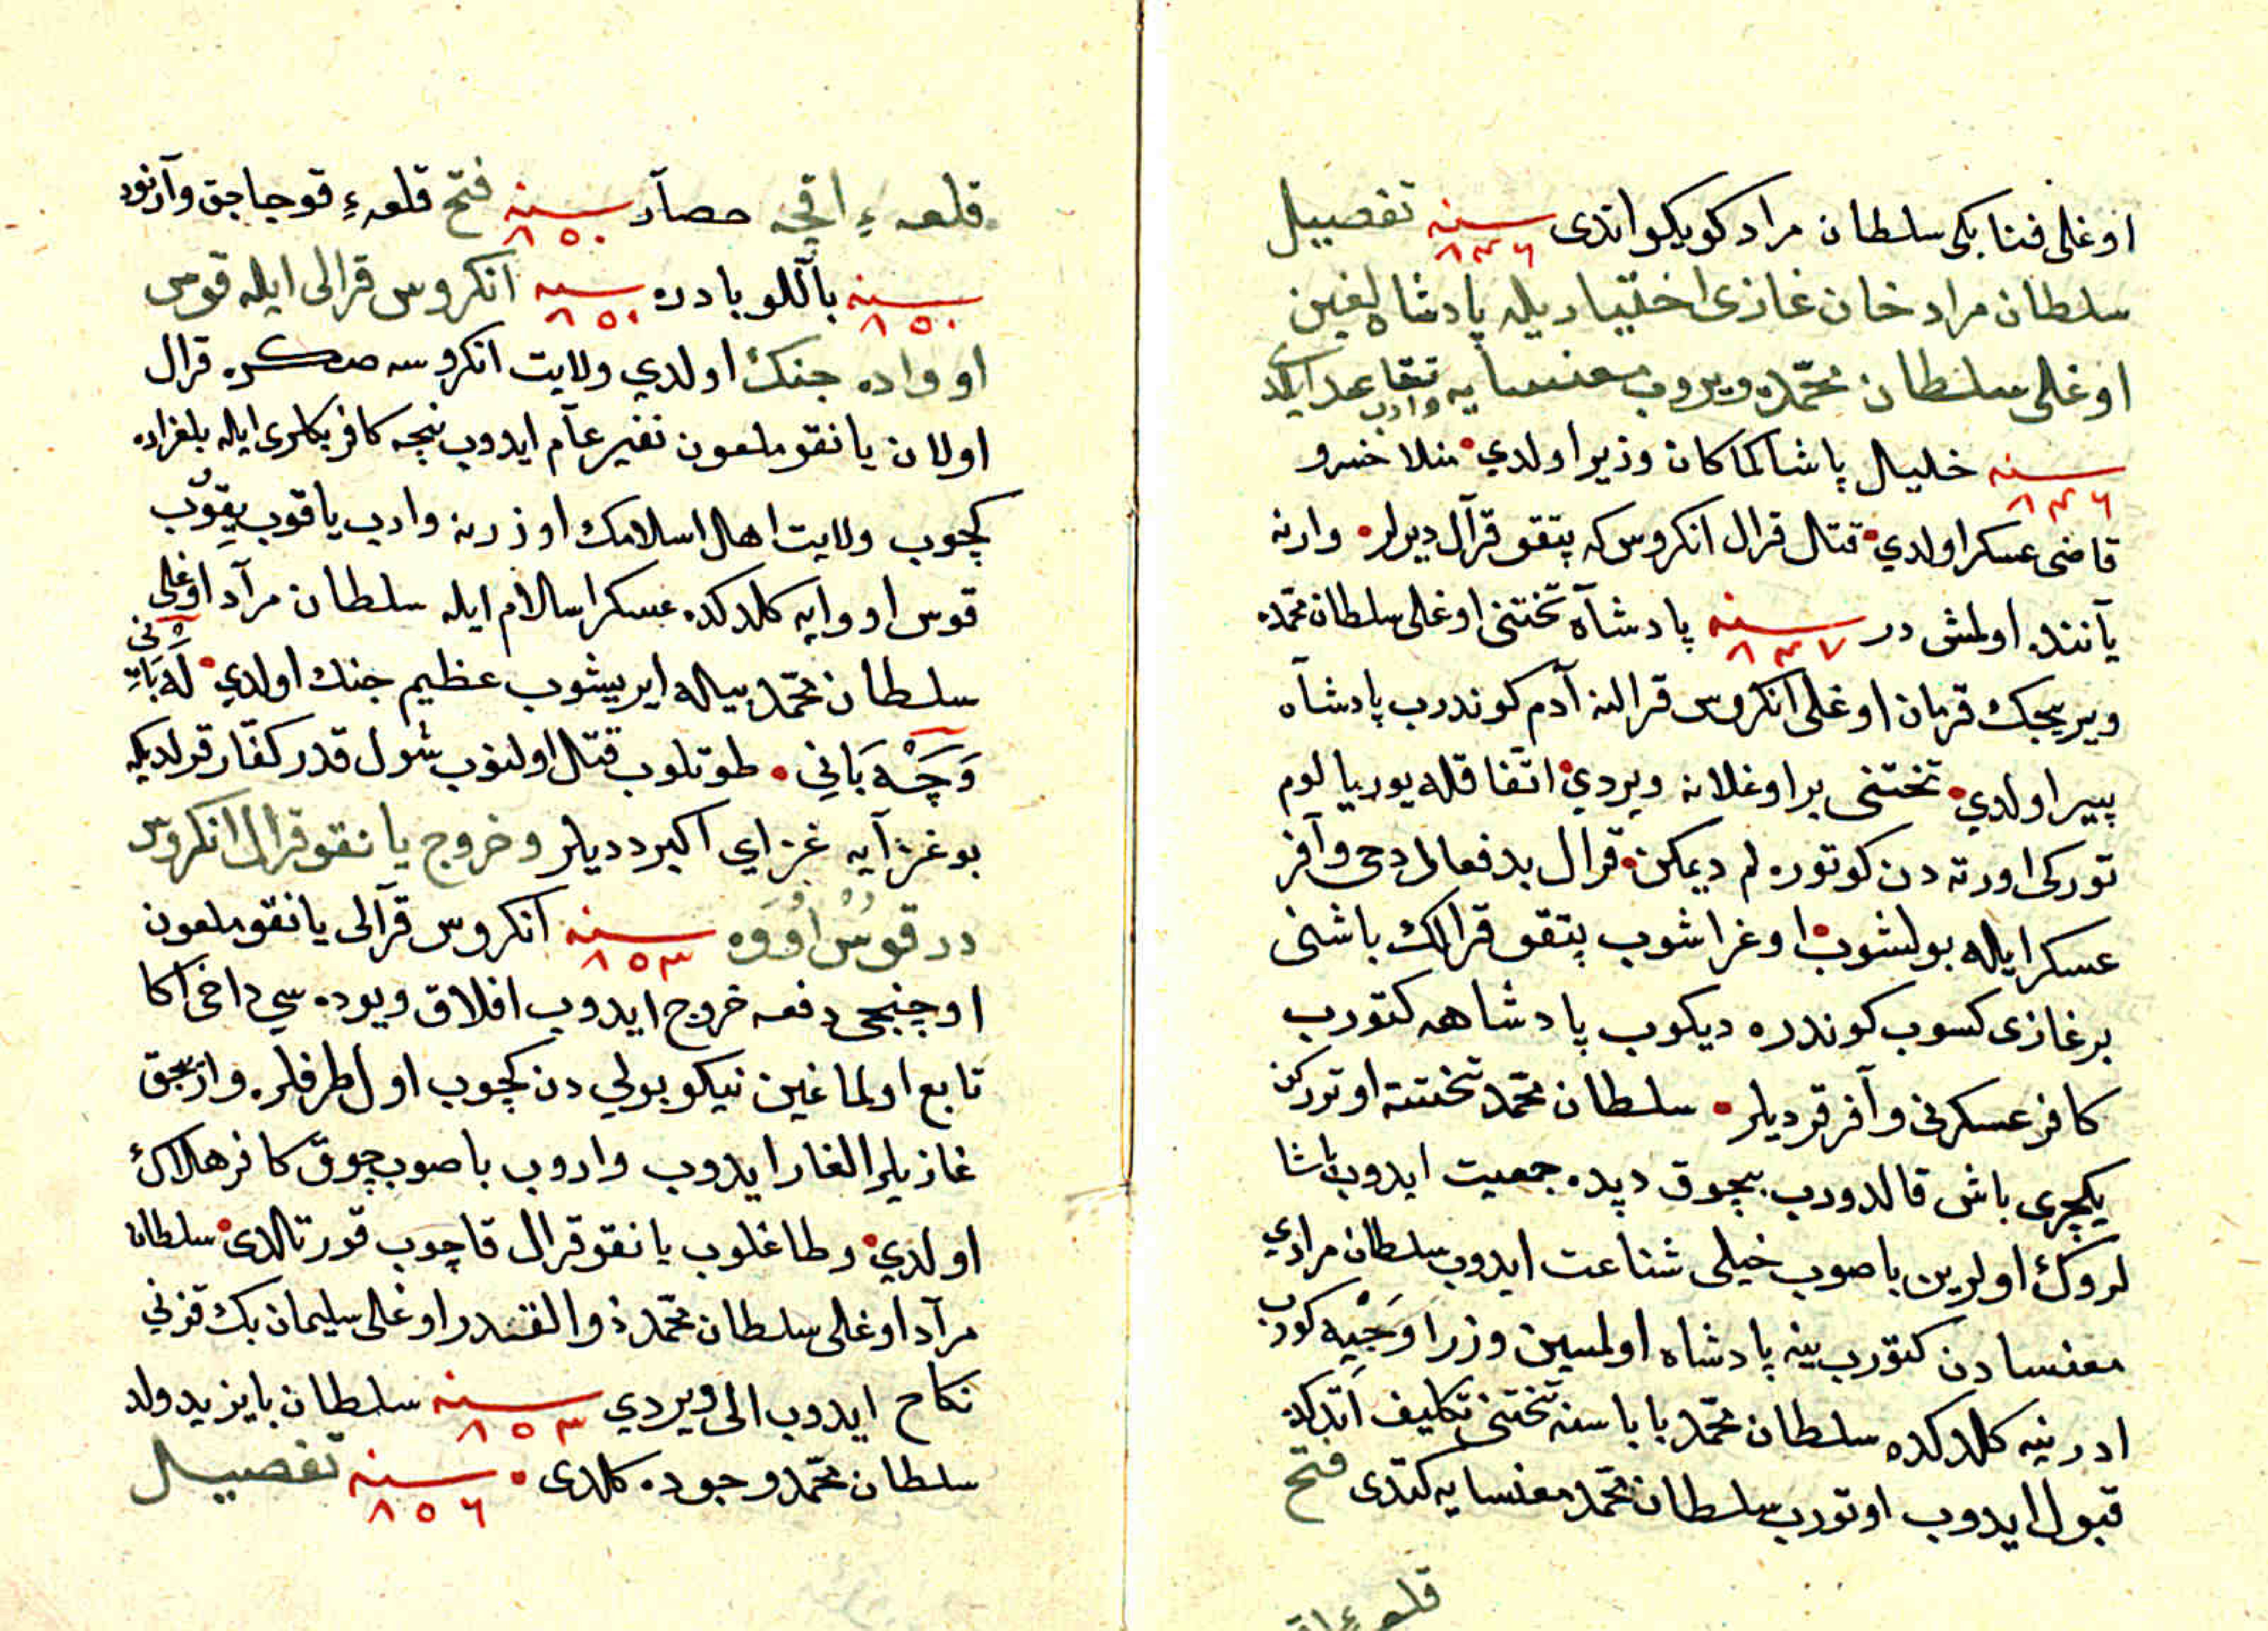 اوغلی فنا بکی سلطان مراد کویکو اتدی سنه ٨٤٦ تفصیل
سلطان مراد خان غازی اختیاریله پادشاهلیغین
اوغلی سلطان محمّده ویروب مغنسایه واروب تقاعد
سنه ٨٤٦ خلیل پاشا کماکان وزیر اولدي منلا خسرو
قاضی عسکر اولدي قتال قرال انکروس که پتقو قرآل دیرلر وارنه
یآننده اولمش در سنه ٨٤٧ پادشآه تختنی اوغلی سلطان محمّده
ویریجک قرمان اوغلی انکروس قرالنه آدم کوندرب پادشآه
پییر اولدي تختنی بر اوغلانه ویردي اتّفاقله یوریالوم
تورکی اورته دن کوتوره لم دیمکن قرال بد فعالر دحی وآفر
عسکر ایله بولشوب اوغراشوب پتقو قرالک باشنی
بر غازی کسوب کوندره دیکوب پادشاهه کتورب
کافر عسکرنی وآفر قردیلر سلطان محمّد تختته اوتورکن
یکچری باش قالدورب بچوق دپه ده جمعیت ایدوب پاشا
لروک اولرین باصوب خیلی شناعت ایدوب سلطان مرادي
مغنسادن کتورب ینه پادشاه اولمسین وزرا وَجْیه کورب
ادرنیه کلدکده سلطان محمّد باباسنه تختنی تکلیف اتدکده
قبول ایدوب اوتورب سلطان محمّد مغنسایه کتدی فتح
قلعهء
قلعهءِ اقچه حصآر سنه ٨٥٠ فتح قلعهءِ قوجاجق وآرنود
سنه ٨٥٠ بآللو بادره سنه ٨٥٠ انکروس قرالی ایله قوس
اوواده جنک اولدي ولایت انکروسه صکره قرال
اولان یانقو ملعون نفیر عآم ایدوب نیجه کافر بکلری ایله بلغراده
کچوب ولایت اهل اسلامک اوزرنه وارب یاقوب یِقوُب
قوس اووایه کلدکده عسکر اسلام ایله سلطان مرآد اوغلی
سلطان محمّد بیله ایریشوب عظیم جنك اولدي لَه بَانِی
وَچَهْ بَانِي طوتلوب قتال اولنوب شول قدر کفّار قرلدیکه
بو غزآیه غزاي اکبر دیدیلر و خروج یانقو قرال انکروس
در قوُسْ اوُوَه سنه ٨٥٣ انکروس قرآلی یانقو ملعون
اوچنجی دفعه خروج ایدوب افلاق ویوده سي داخی آکا
تابع اولماغین نیکوبولي دن کچوب اول طرفلره واریجق
غازیلر الغار ایدوب واروب باصوب چوق کافر هلاك
اولدي وطاغلوب یانقو قرال قاچوب قورتالدی سلطان
مرآد اوغلی سلطان محمّد ذوالقدر اوغلی سلیمان بک قزني
نکاح ایدوب الی ویردي سنه ٨٥٣ سلطان بایزید ولد
سلطان محمّد وجوده کلدی سنه ٨٥٦ تفصیل